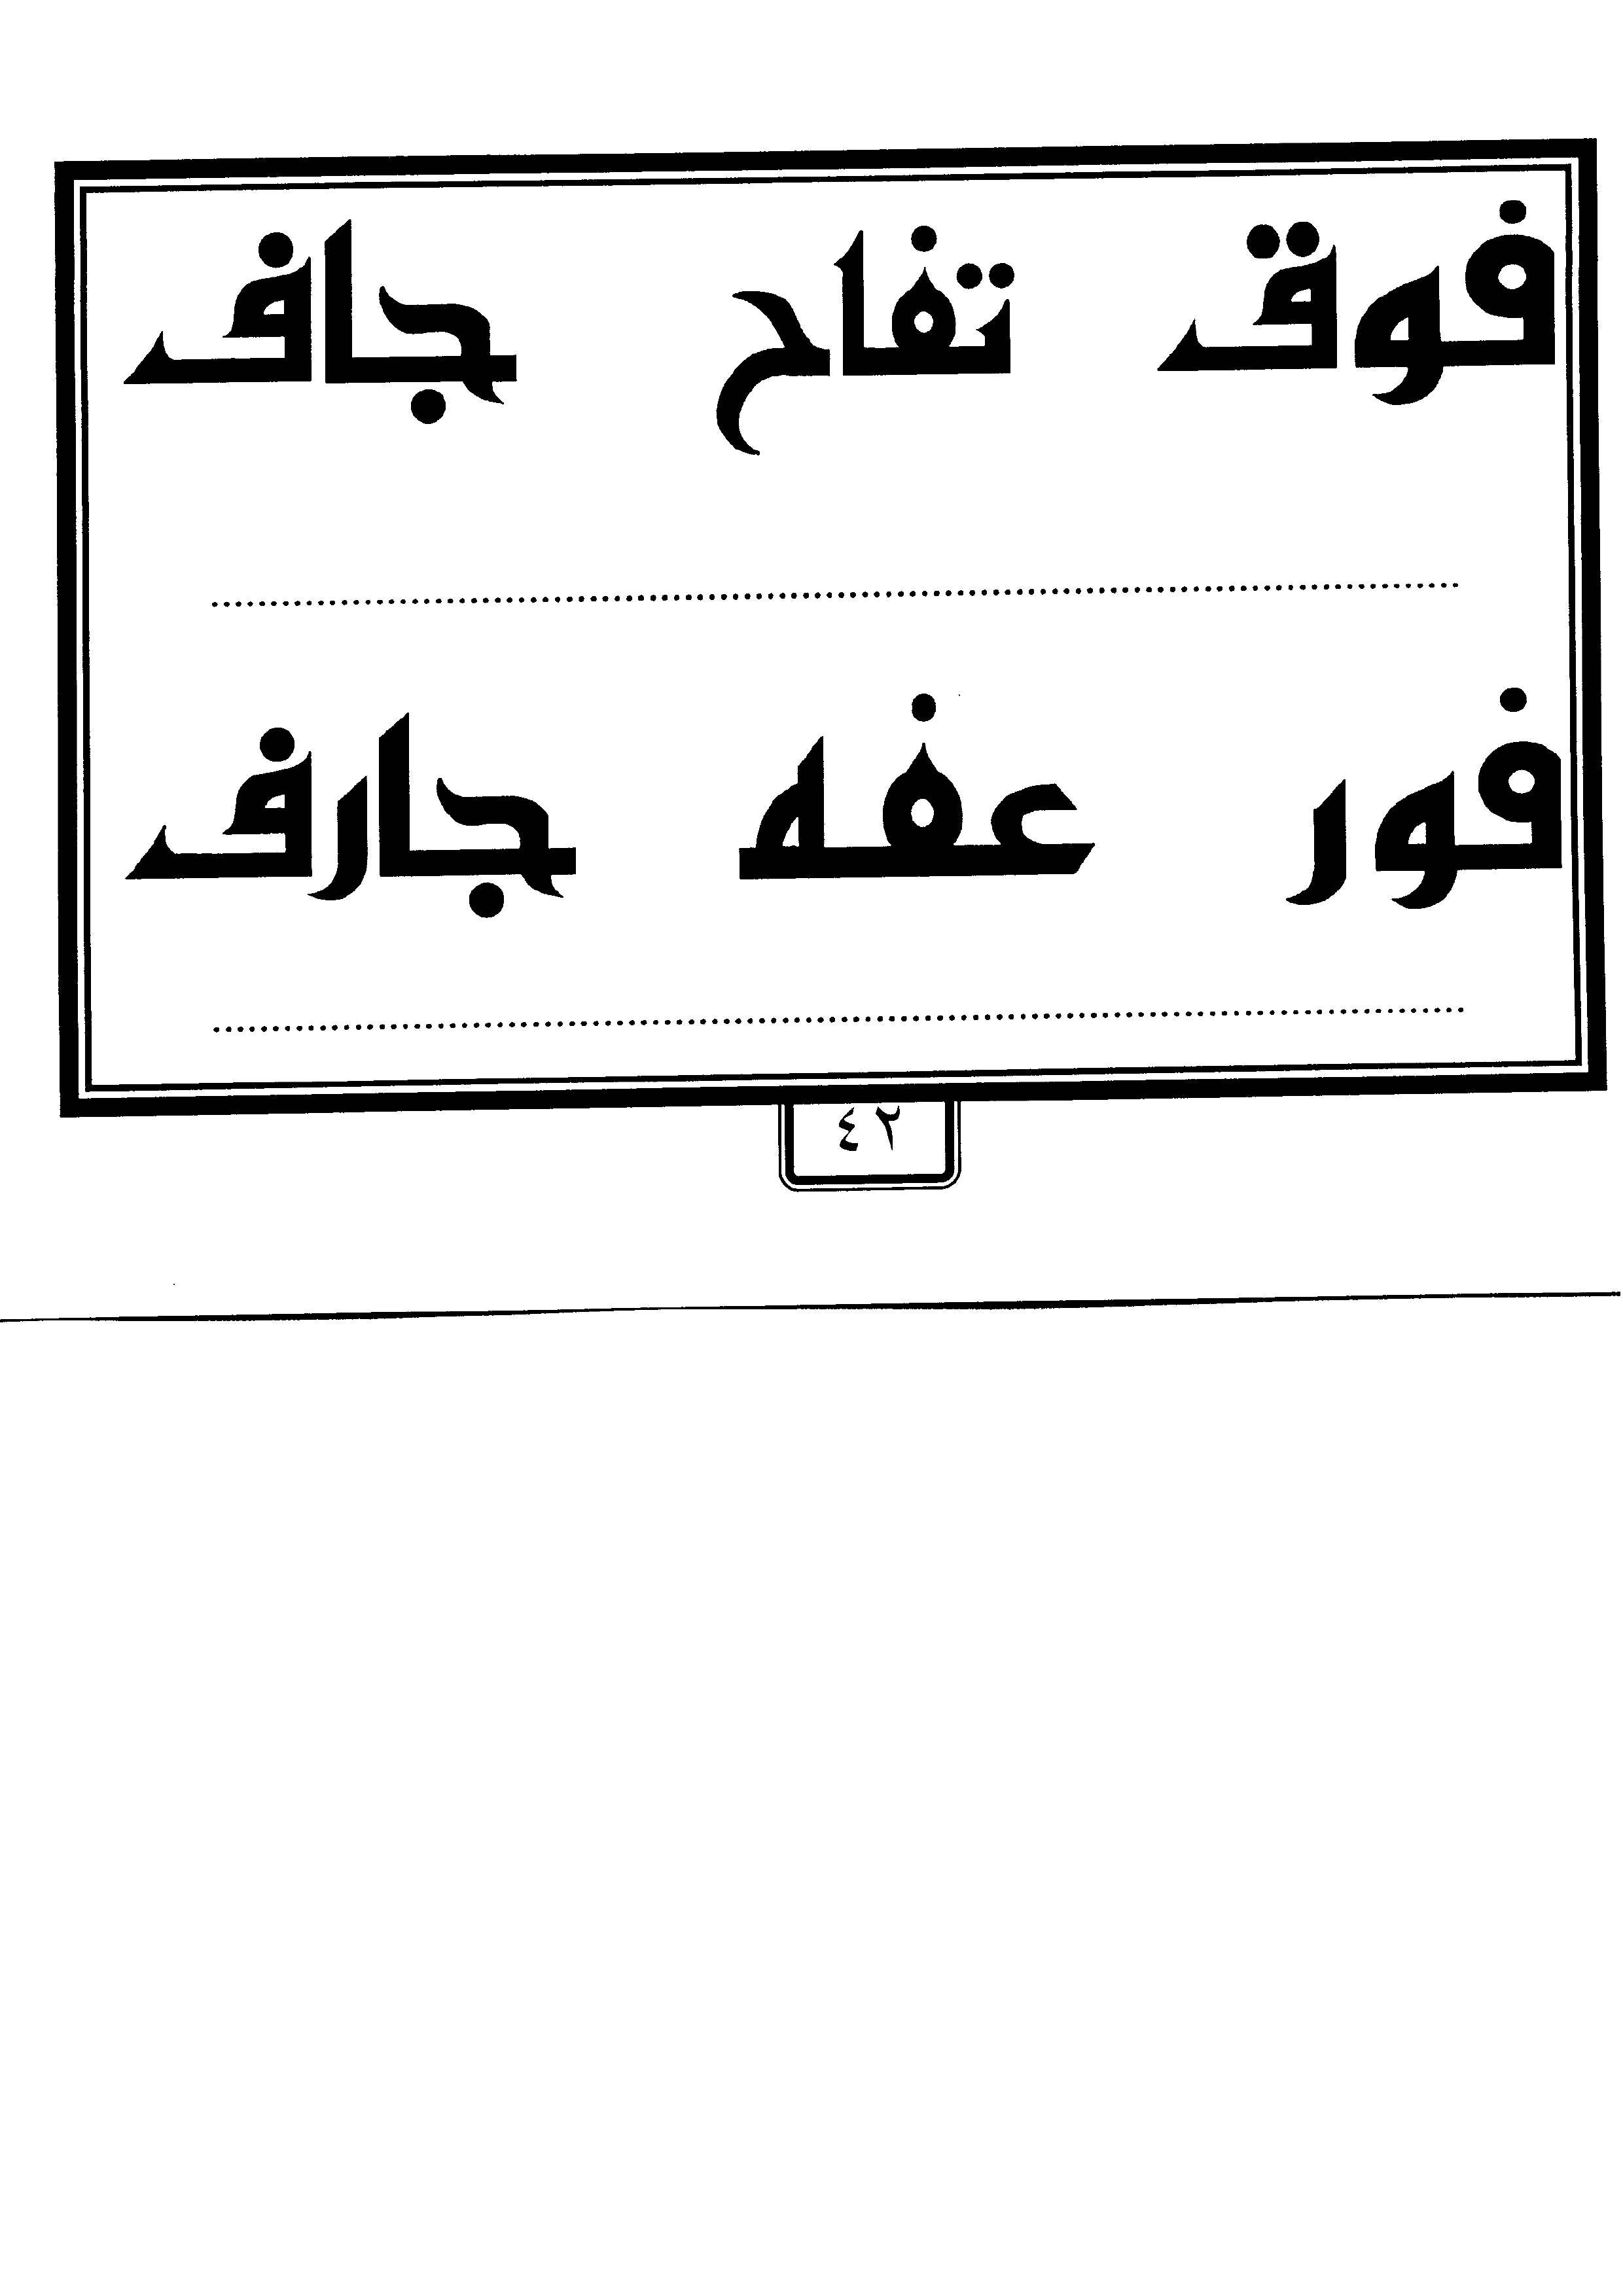 فوق تفاح جاف
فور عفه جارف
٤٢